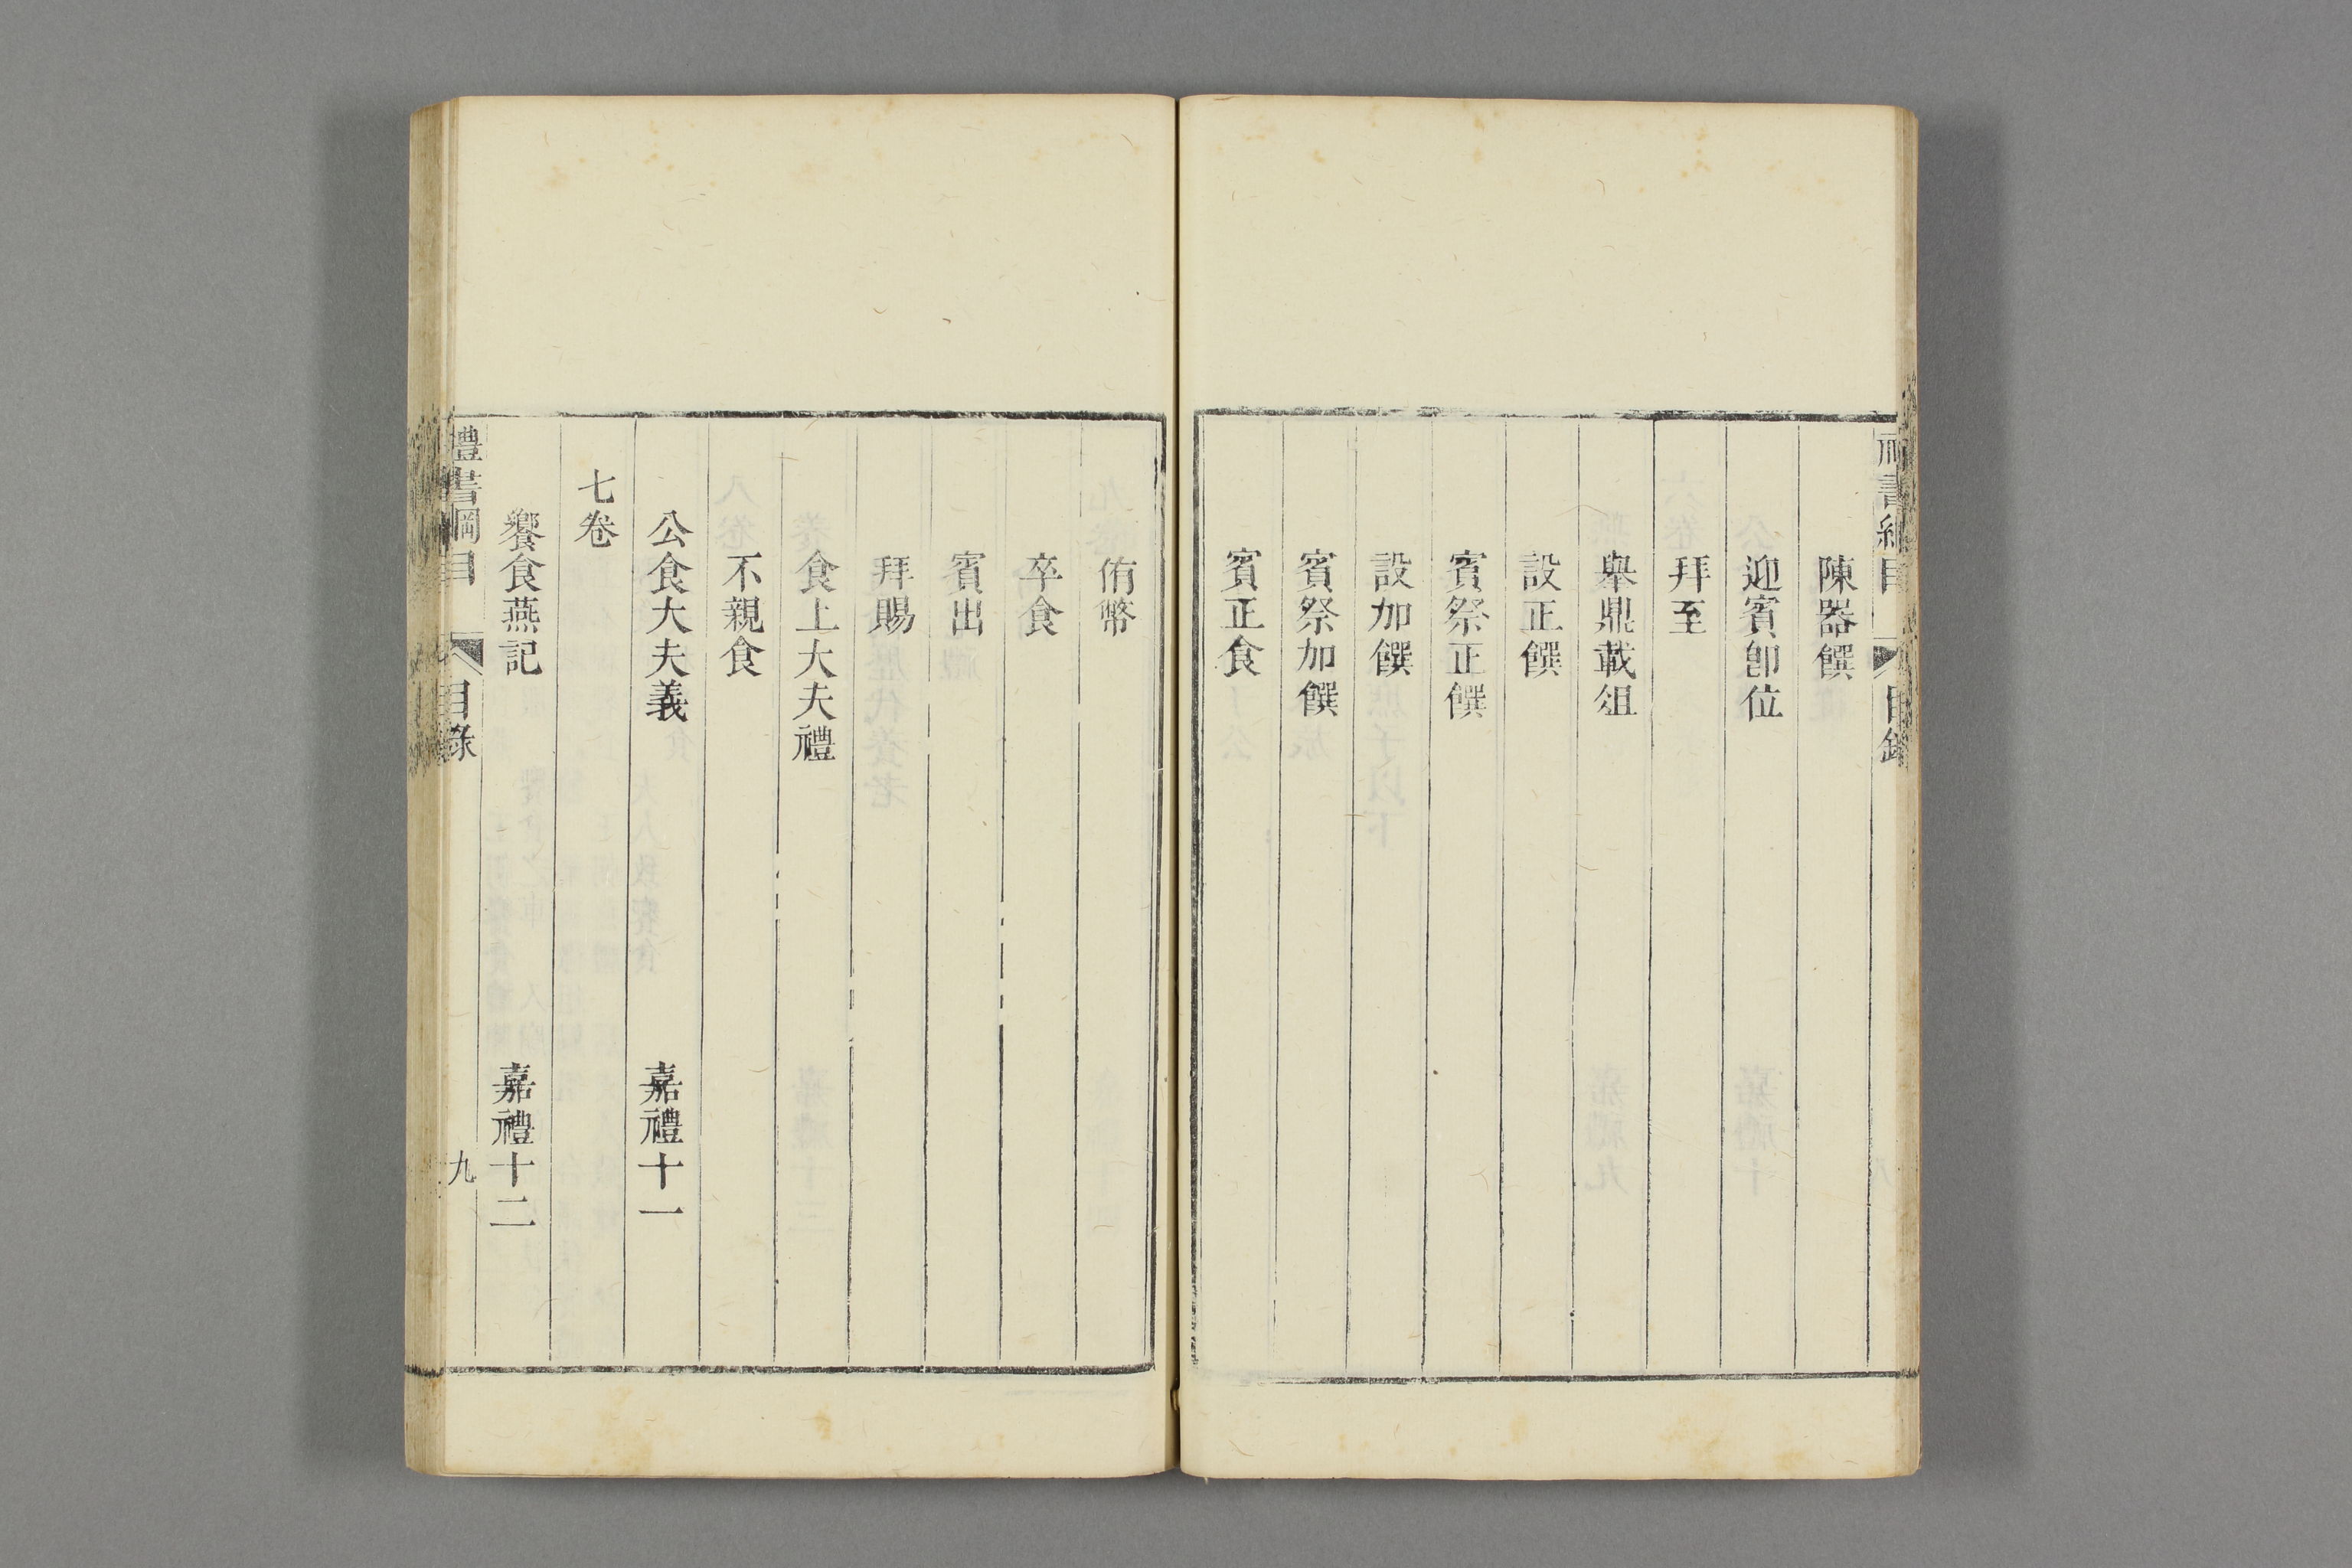 陳器饌
迎賓卽位
拜至
舉鼎載俎
設正饌
賓祭正饌
設加饌
賓祭加饌
賓正食
侑幣
卒食
賓出
拜賜
食上大夫禮
不親食
公食大夫義 嘉禮十一
七卷
饗食燕記 嘉禮十二
禮書綱目 目錄 九